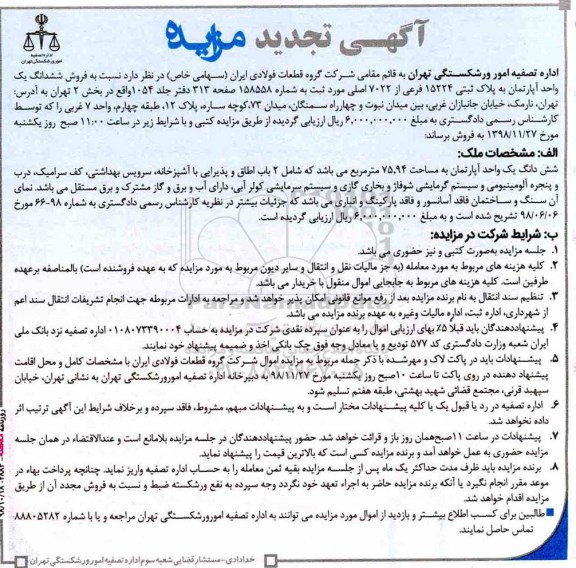 آگهی تجدید مزایده
اداره تصفیه
امور ورشکستگی تهران
اداره تصفیه امور ورشکستگی تهران به قائم مقامی شرکت گروه قطعات فولادی ایران (سهامی خاص) در نظر دارد نسبت به فروش ششدانگ یک
واحد آپارتمان به پلاک ثبتی ۱۵۲۲۴ فرعی از ۷۰۲۲ اصلی مورد ثبت به شماره ۱۵۸۵۵۸ صفحه ۳۱۳ دفتر جلد ۱۰۵۴ واقع در بخش ۲ تهران به آدرس:
تهران، نارمک، خیابان جانبازان غربی، بین میدان نبوت و چهارراه سمنگان، میدان ۷۳، کوچه ساره، پلاک ۱۲، طبقه چهارم، واحد ۷ غربی را که توسط
کارشناس رسمی دادگستری به مبلغ ۶,۰۰۰,۰۰۰,۰۰۰ ریال ارزیابی گردیده از طریق مزایده کتبی و با شرایط زیر در ساعت ۱۱:۰۰ صبح روز یکشنبه
مورخ ۱۳۹۸/۱۱/۲۷ به فروش برساند:
الف: مشخصات ملک:
شش دانگ یک واحد آپارتمان به مساحت ۷۵,۹۴ مترمربع می باشد که شامل ۲ باب اطاق و پذیرایی با آشپزخانه، سرویس بهداشتی، کف سرامیک، درب
و پنجره آلومینیومی و سیستم گرمایشی شوفاژ و بخاری گازی و سیستم سرمایشی کولر آبی، دارای آب و برق و گاز مشترک و برق مستقل می باشد. نمای
آن سنگ و ساختمان فاقد آسانسور و فاقد پارکینگ و انباری می باشد که جزئیات بیشتر در نظریه کارشناس رسمی دادگستری به شماره ۹۸-۶۶ مورخ
۹۸/۰۶/۰۶ تشریح شده است و به مبلغ ۶,۰۰۰,۰۰۰,۰۰۰ ریال ارزیابی گردیده است.
ب: شرایط شرکت در مزایده:
۱. جلسه مزایده به‌صورت کتبی و نیز حضوری می باشد.
۲. کلیه هزینه های مربوط به مورد معامله (به جز مالیات نقل و انتقال و سایر دیون مربوط به مورد مزایده که به عهده فروشنده است) بالمناصفه برعهده
طرفین است. کلیه هزینه های مربوط به جابجایی اموال منقول با خریدار می باشد.
۳. تنظیم سند انتقال به نام برنده مزایده بعد از رفع موانع قانونی امکان پذیر خواهد شد و مراجعه به ادارات مربوطه جهت انجام تشریفات انتقال سند اعم
از شهرداری، اداره ثبت، اداره مالیات وغیره به عهده برنده مزایده می باشد.
۴. پیشنهاددهندگان باید قبلا ۵٪ بهای ارزیابی اموال را به عنوان سپرده نقدی شرکت در مزایده به حساب ۰۱۰۸۰۷۳۳۹۰۰۰۴ اداره تصفیه نزد بانک ملی
ایران شعبه وزارت دادگستری کد ۵۷۷ تودیع و یا معادل وجه فوق چک بانکی اخذ و ضمیمه پیشنهاد خود نمایند.
۵. پیشنهادات باید در پاکت لاک و مهرشده با ذکر جمله مربوط به مزایده اموال شرکت گروه قطعات فولادی ایران با مشخصات کامل و محل اقامت
پیشنهاد دهنده در روی پاکت تا ساعت ۱۰ صبح روز یکشنبه مورخ ۹۸/۱۱/۲۷ به دبیرخانه اداره تصفیه امورورشکستگی تهران به نشانی تهران، خیابان
سپهبد قرنی، مجتمع قضائی شهید بهشتی، طبقه هفتم تسلیم شود.
۶. اداره تصفیه در رد یا قبول یک یا کلیه پیشنهادات مختار است و به پیشنهادات مبهم، مشروط، فاقد سپرده و برخلاف شرایط این آگهی ترتیب اثر
داده نخواهد شد.
۷. پیشنهادات در ساعت ۱۱ صبح‌همان روز باز و قرائت خواهد شد. حضور پیشنهاددهندگان در جلسه مزایده بلامانع است و عندالاقتضاء در همان جلسه
مزایده حضوری به عمل خواهد آمد و برنده مزایده کسی است که بالاترین قیمت را پیشنهاد نماید.
۸. برنده مزایده باید ظرف مدت حداکثر یک ماه پس از جلسه مزایده بقیه ثمن معامله را به حساب اداره تصفیه واریز نماید. چنانچه پرداخت بهاء در
موعد مقرر انجام نگیرد یا آنکه برنده مزایده حاضر به اجراء تعهد خود نگردد وجه سپرده به نفع ورشکسته ضبط و نسبت به فروش مجدد آن از طریق
مزایده اقدام خواهد شد.
طالبین برای کسب اطلاع بیشتر و بازدید از اموال مورد مزایده می توانند به اداره تصفیه امورورشکستگی تهران مراجعه و یا با شماره ۸۸۸۰۵۲۸۲
تماس حاصل نمایند.
خدادادی-مستشار قضایی شعبه سوم اداره تصفیه امور ورشکستگی تهران